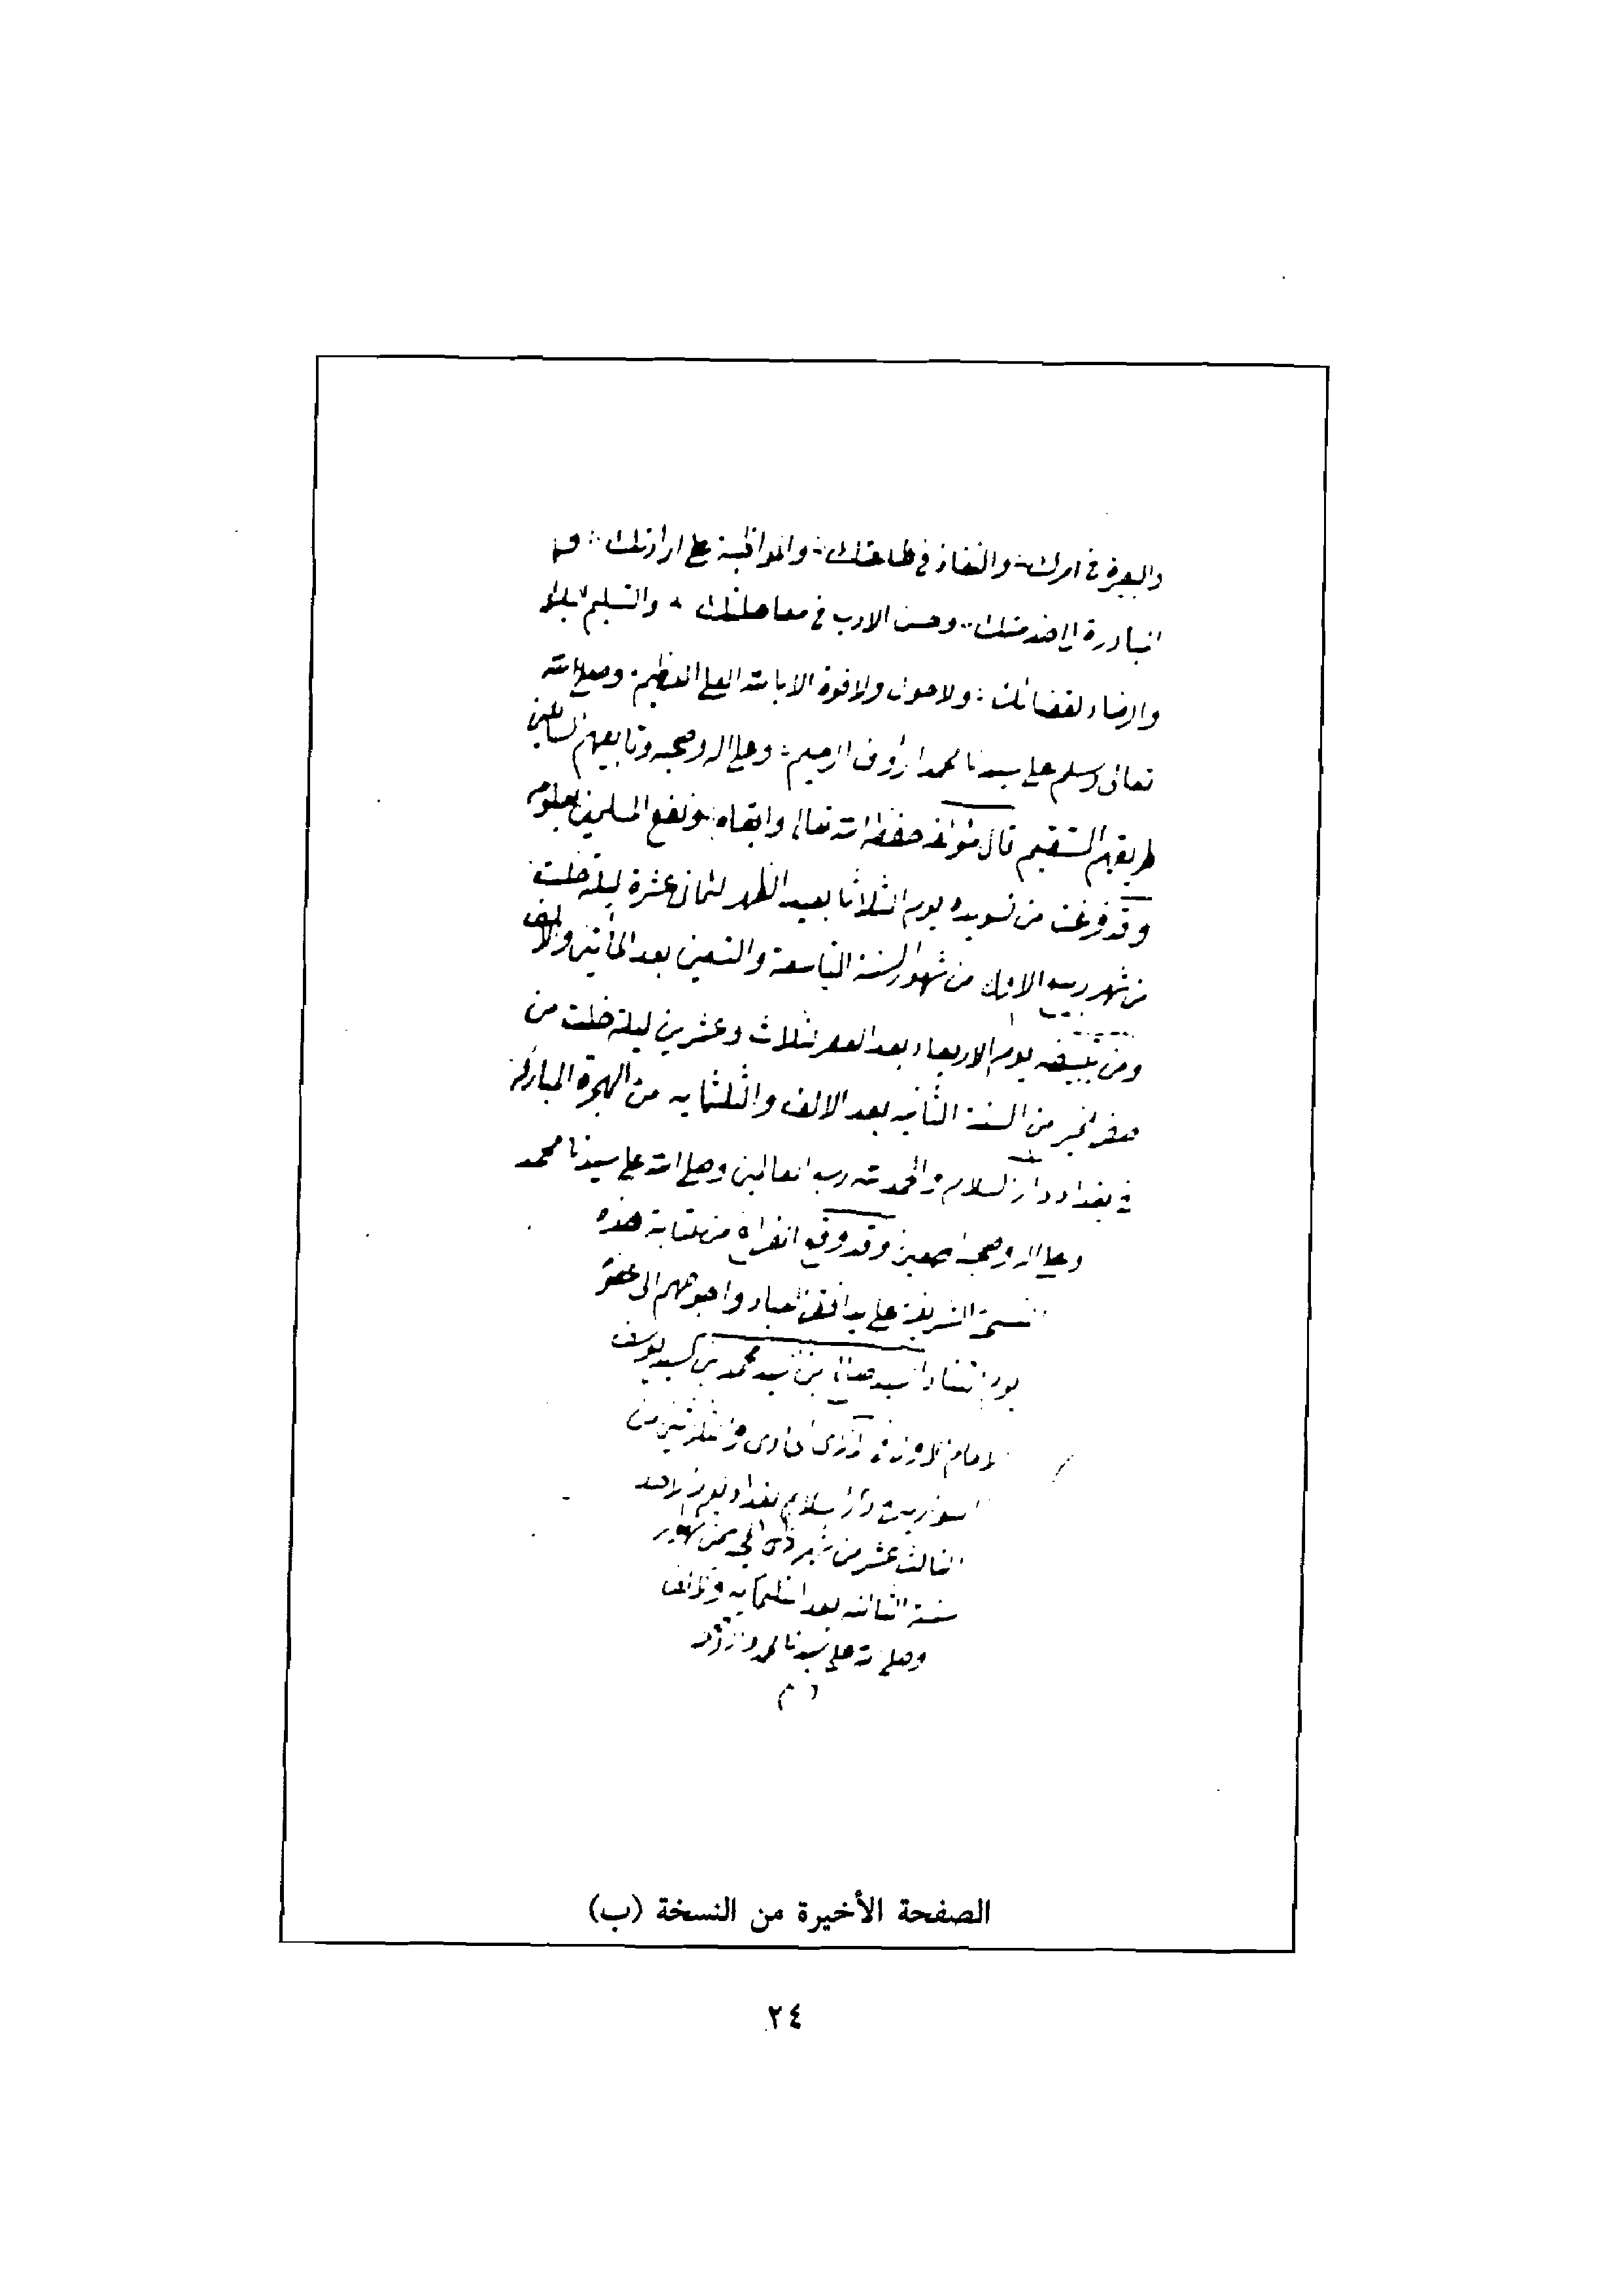 والبصيرة في امرك والنفاذ في طاعتك والمواظبة على ارادتك
المبادرة الى خدمتك وحسن الادب في معاملتك والتسليم اليك
والرضاء بقضائك ولا حول ولا قوة الا بالله العلي العظيم وصلى الله
تعالى وسلم على سيدنا محمد الرؤف الرحيم وعلى اله وصحبه وتابعيهم السالكين
طريقهم المستقيم قال مؤلفه حفظه الله تعالى وابقاه ونفع المسلمين بعلومه
وقد فرغت من تسويده يوم الثلاثا بعيد الظهر لثمان عشرة ليلة خلت
من شهر ربيع الاول من شهور السنة التاسعة والتسعين بعد المأتين والالف
ومن تبييضه يوم الاربعاء بعد العصر لثلاث وعشرين ليلة خلت من
صفر الخير من السنة الثانية بعد الالف والثلثماية من الهجرة المباركة
في بغداد دار السلام والحمد لله رب العالمين وصلى الله على سيدنا محمد
وعلى اله وصحبه اجمعين وقد وقع الفراغ من كتابة هذه
النسخة الشريفة على يد افقر العباد واحوجهم الى عفو
يوم التناد السيد صالح بن السيد محمد بن السيد يوسف
من
دار السلام بغداد يوم الاحد
الثالث عشر من شهر ذي الحجة من شهور
سنة الثالثة بعد الثلثماية والالف
وصلى الله على سيدنا محمد واله
الصفحة الأخيرة من النسخة (ب)
٢٤